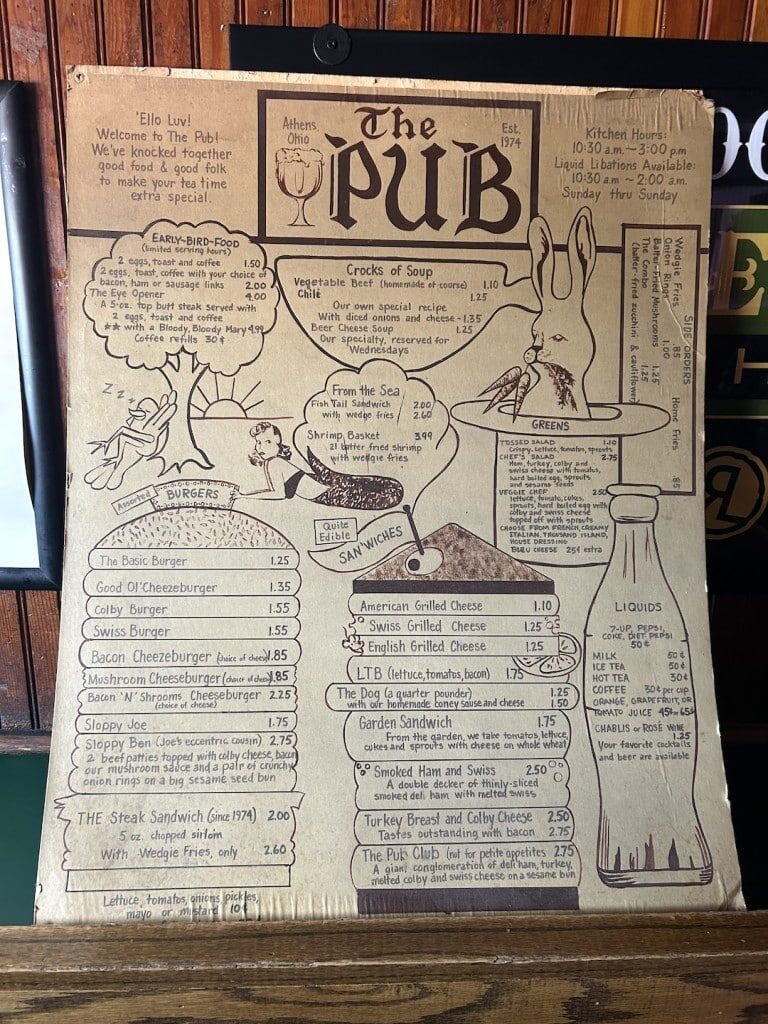 'Ello Luv!
Welcome to The Pub!
We've knocked together
good food & good folk
to make your tea time
extra special.
Athens,
Ohio
The
PUB
Est.
1974
Kitchen Hours:
10:30 a.m. ~ 3:00 p.m
Liquid Libations Available:
10:30 am ~ 2:00 a.m.
Sunday thru Sunday
EARLY-BIRD-FOOD
(limited serving hours)
2 eggs, toast and coffee 1.50
2 eggs, toast, coffee with your choice of
bacon, ham or sausage links 2.00
The Eye Opener 4.00
A 5-oz. top butt steak served with
2 eggs, toast and coffee
★★ with a Bloody, Bloody Mary 4.99
Coffee refills 30¢
Crocks of Soup
Vegetable Beef (homemade of course) 1.10
Chile 1.25
Our own special recipe
With diced onions and cheese - 1.35
Beer Cheese Soup 1.25
Our specialty, reserved for
Wednesdays
SIDE ORDERS
Wedgie Fries .85 Home Fries .85
Onion Rings 1.00
Batter-Fried Mushrooms 1.25
The Combo 1.25
(batter-fried zucchini & cauliflower)
Zzz
From the Sea
Fish Tail Sandwich 2.00
with wedge fries 2.60
Shrimp Basket 3.99
21 batter fried shrimp
with wedgie fries
GREENS
TOSSED SALAD 1.10
Crispy, lettuce, tomatos, sprouts
CHEF'S SALAD 2.75
Ham, turkey, colby and
swiss cheese with tomatos,
hard boiled egg, sprouts
and sesame seeds
VEGGIE CHEF 2.50
lettuce, tomato, cukes,
sprouts, hard boiled egg with
colby and swiss cheese
topped off with sprouts
CHOOSE FROM FRENCH, CREAMY
ITALIAN, THOUSAND ISLAND,
HOUSE DRESSING
BLEU CHEESE 25¢ extra
Assorted
BURGERS
The Basic Burger 1.25
Good Ol' Cheezeburger 1.35
Colby Burger 1.55
Swiss Burger 1.55
Bacon Cheezeburger (choice of cheese) 1.85
Mushroom Cheeseburger (choice of cheese) 1.85
Bacon 'N' Shrooms Cheeseburger 2.25
(choice of cheese)
Sloppy Joe 1.75
Sloppy Ben (Joe's eccentric cousin) 2.75
2 beef patties topped with colby cheese, bacon
our mushroom sauce and a pair of crunchy
onion rings on a big sesame seed bun
THE Steak Sandwich (since 1974) 2.00
5 oz. chopped sirloin
With Wedgie Fries, only 2.60
Lettuce, tomatos, onions, pickles,
mayo or mustard 10¢
Quite
Edible
SAN'WICHES
American Grilled Cheese 1.10
Swiss Grilled Cheese 1.25
English Grilled Cheese 1.25
LTB (lettuce, tomatos, bacon) 1.75
The Dog (a quarter pounder) 1.25
with our homemade coney sauce and cheese 1.50
Garden Sandwich 1.75
From the garden, we take tomatos, lettuce,
cukes and sprouts with cheese on whole wheat
Smoked Ham and Swiss 2.50
A double decker of thinly-sliced
smoked deli ham with melted swiss
Turkey Breast and Colby Cheese 2.50
Tastes outstanding with bacon 2.75
The Pub Club (not for petite appetites 2.75
A giant conglomeration of deli ham, turkey,
melted colby and swiss cheese on a sesame bun
LIQUIDS
7-UP, PEPSI,
COKE, DIET PEPSI
50¢
MILK 50¢
ICE TEA 50¢
HOT TEA 30¢
COFFEE 30¢ per cup
ORANGE, GRAPEFRUIT, OR
TOMATO JUICE 45¢ or 65¢
CHABLIS or ROSÉ WINE
1.25
Your favorite cocktails
and beer are available